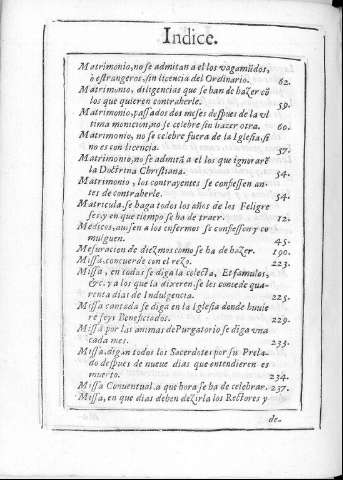 Indice.
Matrimonio, no se admitan a el los vagamũdos,
ò estrangeros, sin licencia del Ordinario. 62.
Matrimonio, diligencias que se han de hazer cõ
los que quieren contraherle. 59.
Matrimonio, passados dos meses despues de la vl
tima monicion, no se celebre sin hazer otra. 60.
Matrimonio, no se celebre fuera de la Iglesia, si
no es con licencia. 57.
Matrimonio, no se admitã a el los que ignorarẽ
la Doctrina Christiana. 54.
Matrimonio, los contrayentes se confiessen an-
tes de contraherle. 54.
Matricula, se haga todos los años de los Feligre
ses, y en que tiempo se ha de traer. 12.
Medicos, auisen a los enfermos se confiessen y co
mulguen. 45.
Mesuracion de diezmos como se ha de hazer. 190.
Missa, concuerde con el rezo. 223.
Missa, en todas se diga la colecta, Et famulos,
&c. y a los que la dixeren, se les concede qua-
renta dias de Indulgencia. 225.
Missa cantada se diga en la Iglesia donde huuie
re seys Beneficiados. 229.
Missa por las animas de Purgatorio se diga vna
cada mes. 233.
Missa, digan todos los Sacerdotes por su Prela-
do despues de nueue dias que entendieren es
muerto. 234.
Missa Conuentual, a que hora se ha de celebrar. 237.
Missa, en que dias deben dezirla los Rectores y
de-